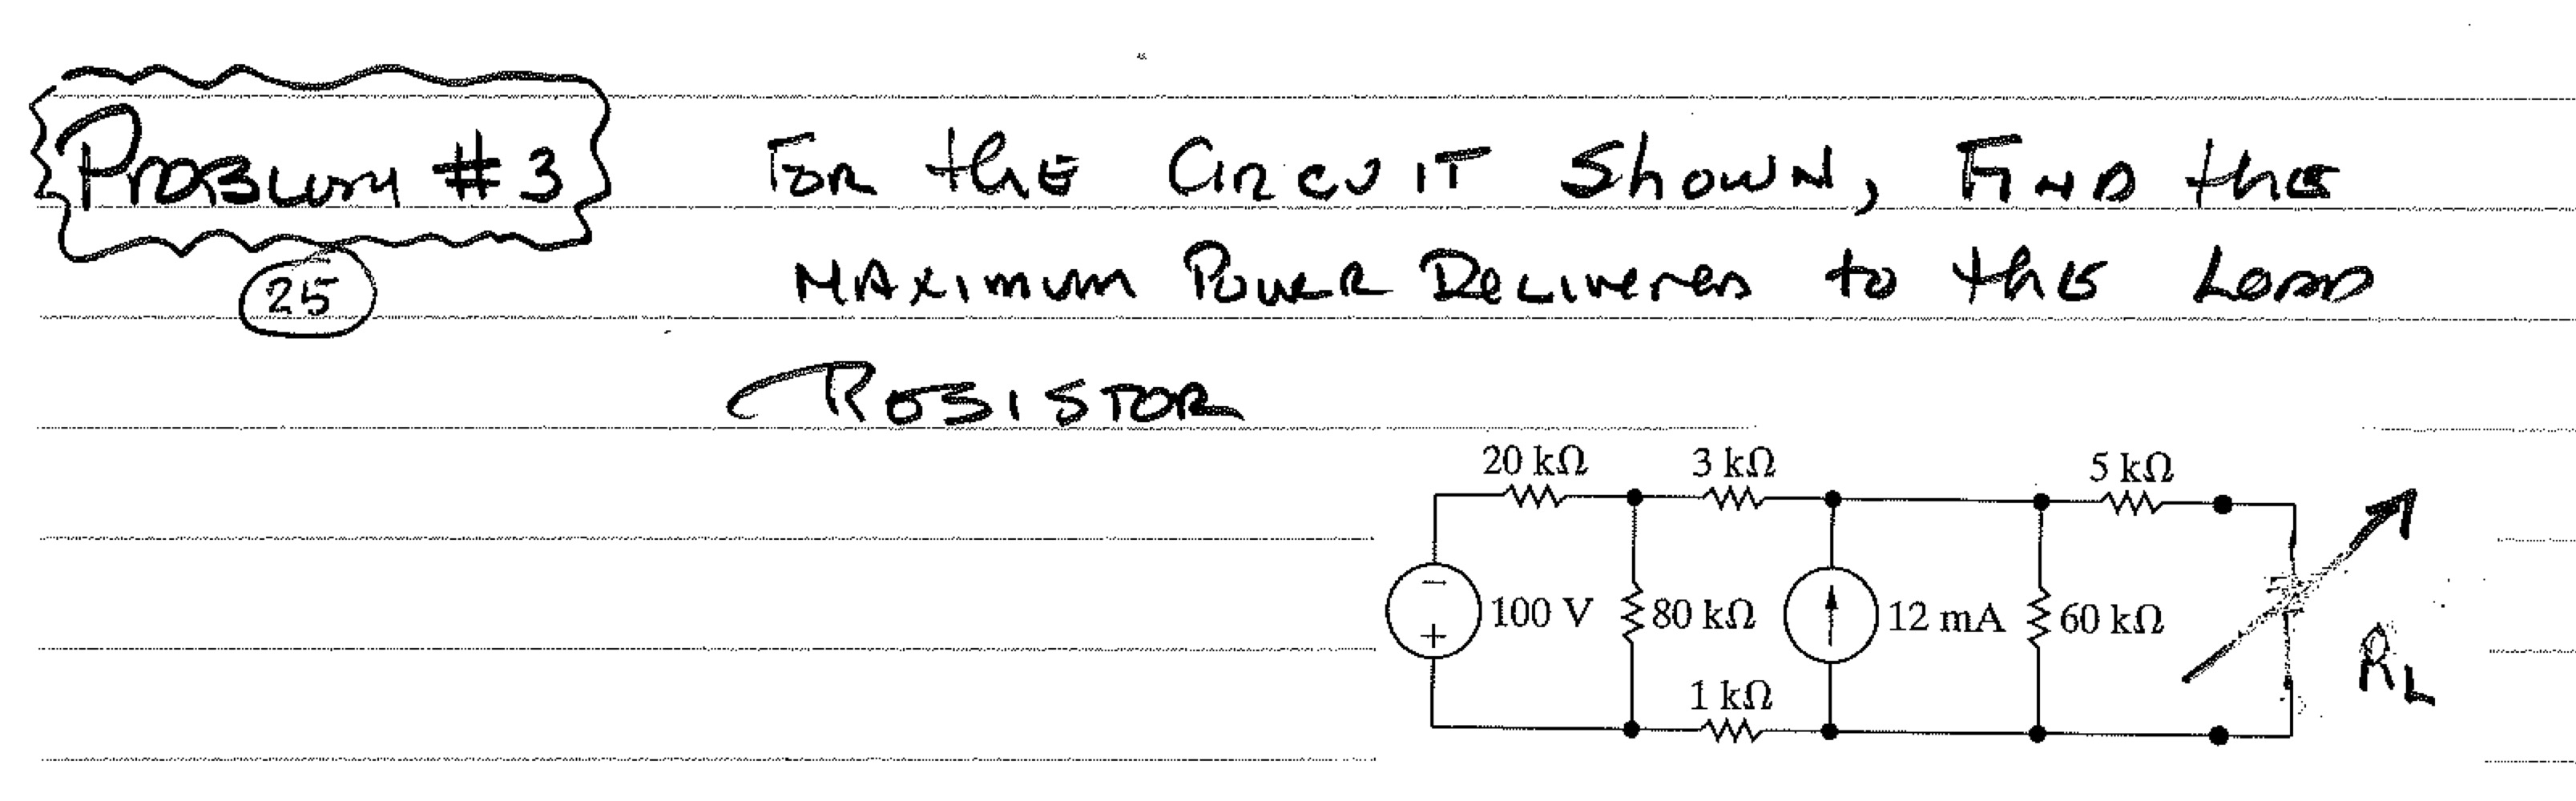 Problem #3 For the Circuit Shown, Find the
25 Maximum Power Delivered to the Load
Resistor
20 kΩ 3 kΩ 5 kΩ
− 100 V 80 kΩ 12 mA 60 kΩ
+
1 kΩ RL